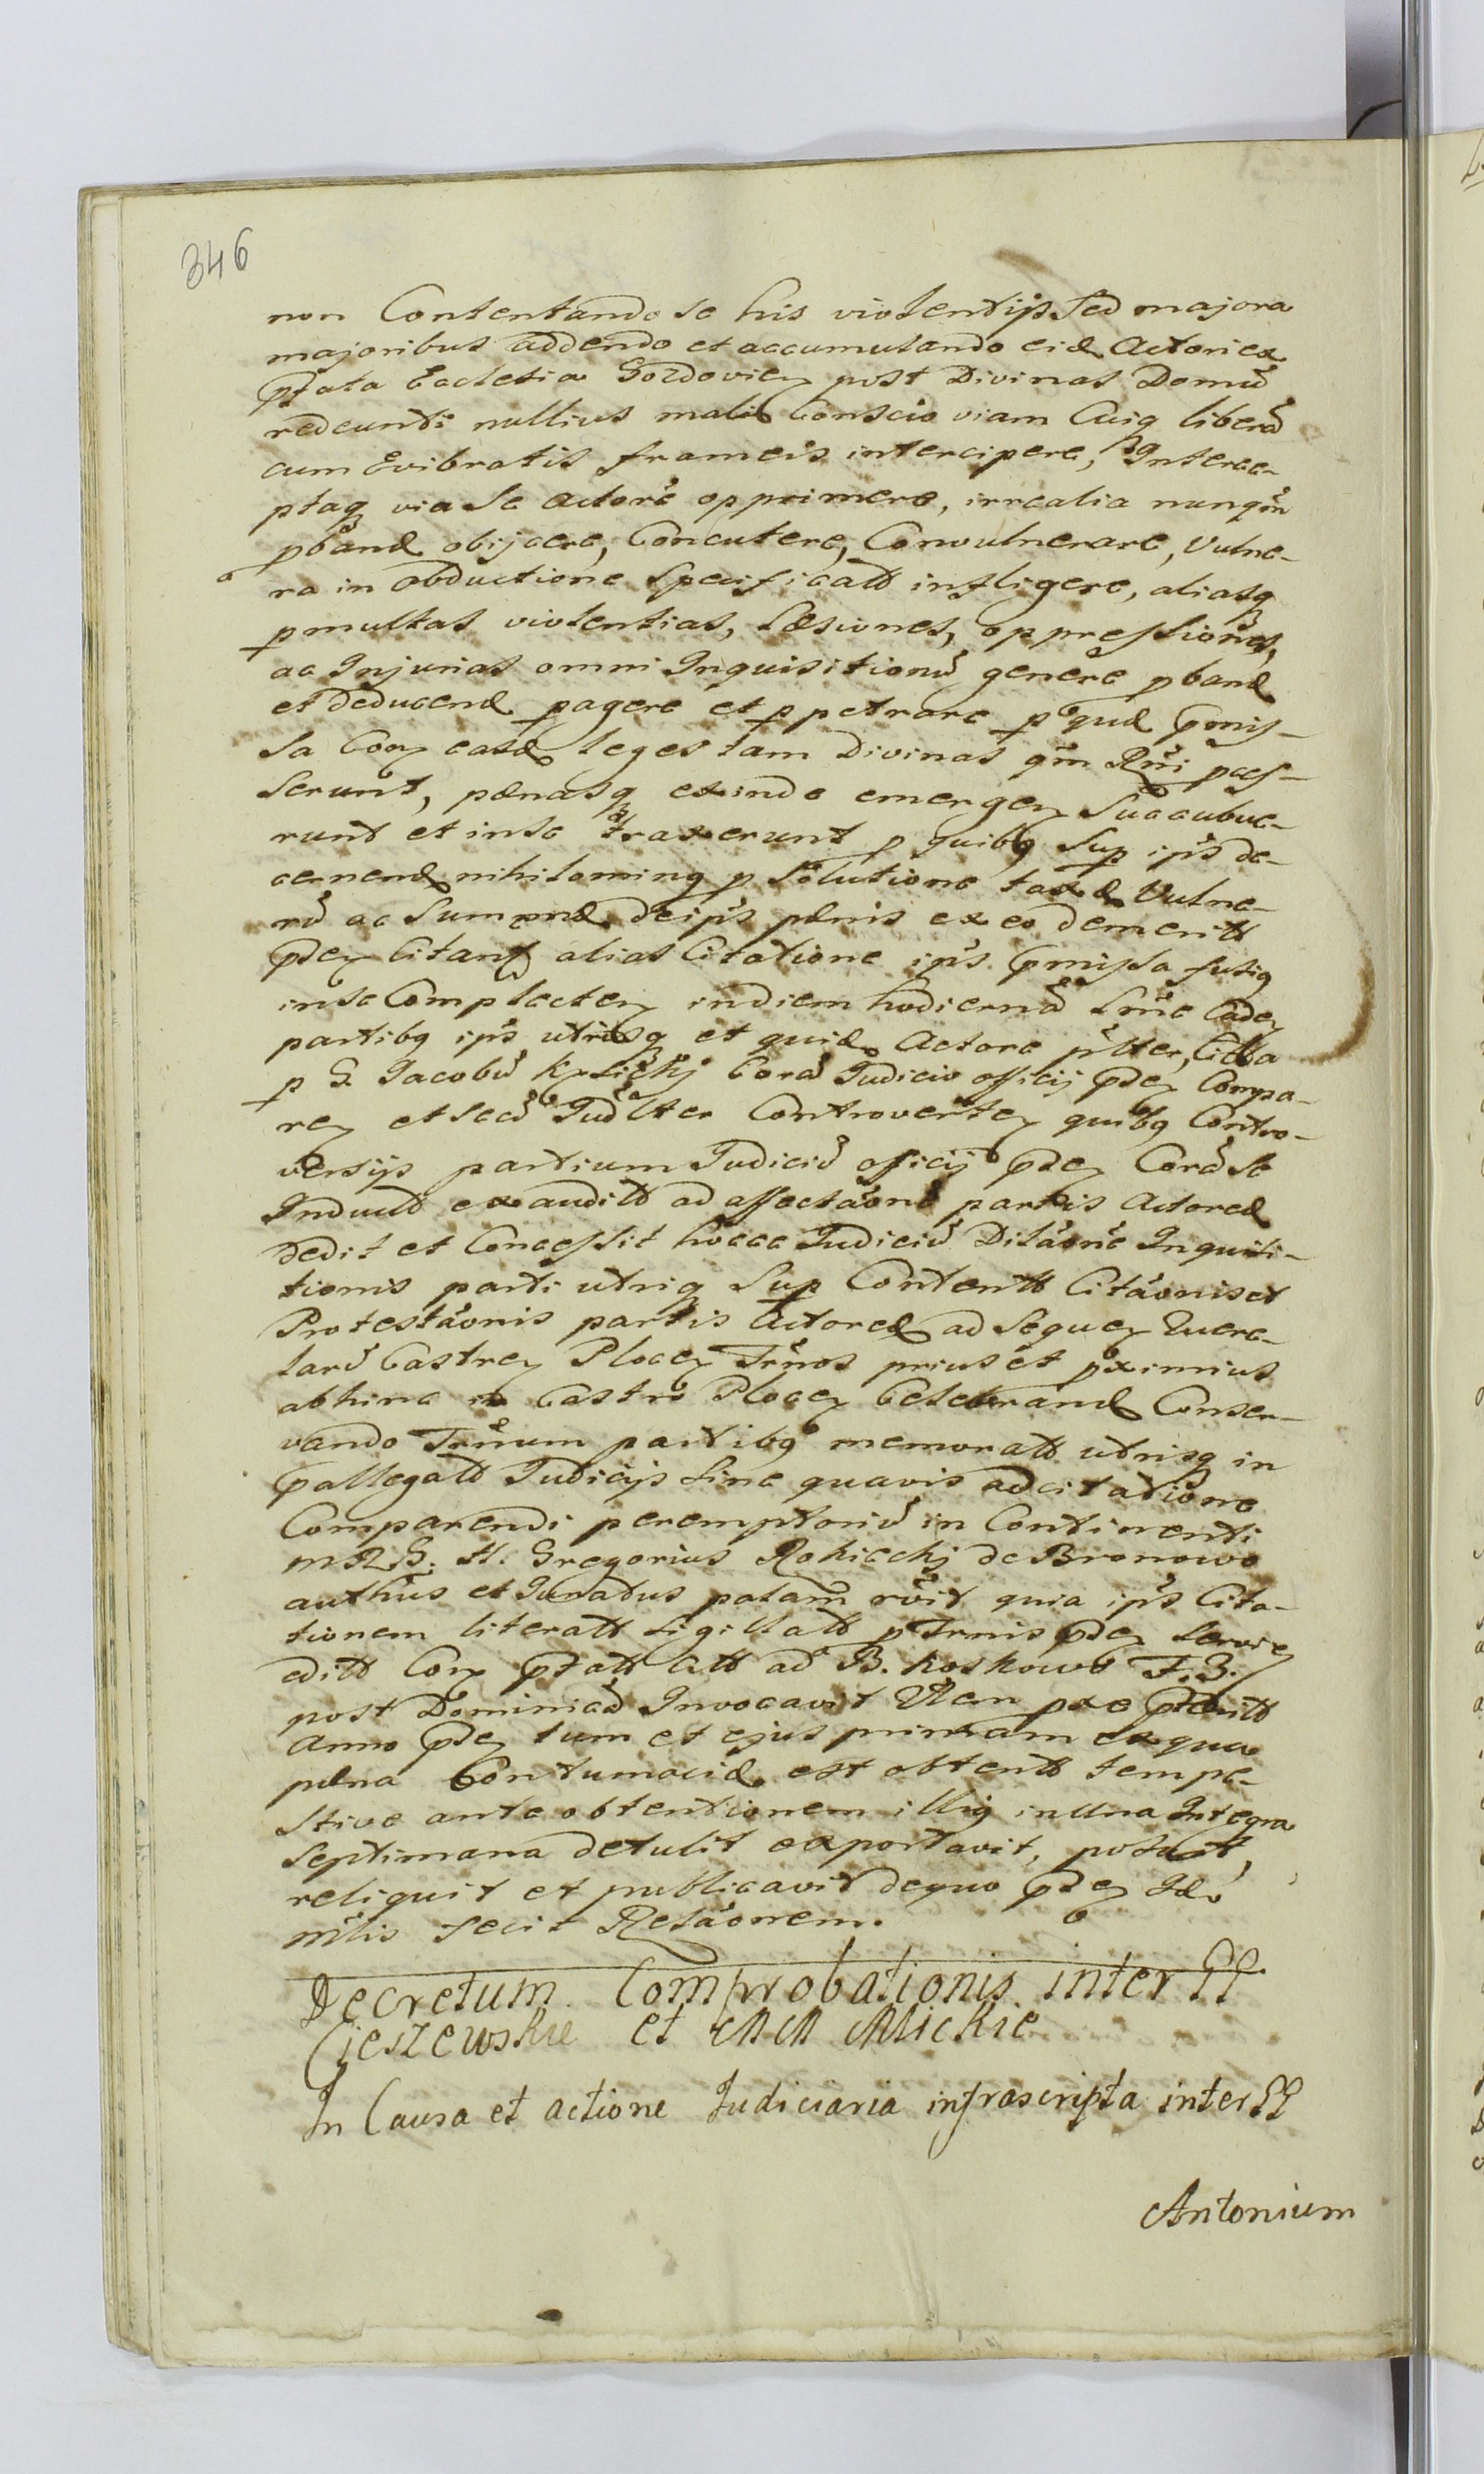 346
non Contentando se his violentijs sed majora
majoribus addendo et accumulando eid Actori ex
pfata Ecclesia Gozdovien post Divinas Domū
redeunti nullius mali Conscio viam Cuiq liberā
cum Evibratis frameis intercipere, Interce-
ptaq via se Actorē opprimere, irrealia nunqm̄
pband objicere, Concutere, Convulnerare, Vulne-
ra in obductione Specificatt infligere, aliasq
pmultas violentias, Læsiones, oppressiones,
ac Injurias omni Inquisitionū genere pband
et deducend pagere et ppetrare p qud pmis-
sa Con easd leges tam Divinas qm̄ Rni
serunt, pænasq exinde emergen Succubue-
runt et in se traxerunt p quibq Sup ips de-
cernend nihilominq p Solutione taxæ Vulne-
rū ac Sumend de ips pænis ex eo demeritt
pden Citant alias Citatione ips pmissa fusiq
in se Complecten in diem hodiernā Caden
partibq ips utrisq et quid Actore Citta
p G. Jacobū Corā Judicio officij pden Compa-
ren et secū Judlter Controverten quibq Contro-
versijs partium Judiciū officij pden Corā se
Induct exauditt ad affectāone partis Actoreæ
dedit et Concessit hocce Judiciū Dilāone Inquisi-
tionis parti utriq Sup Contentt Citāonis et
Protestāonis partis Actoreæ ad Sequen Quere-
larū Castren Plocen Trnos prius et pximius
abhinc in Castro Plocen Celebrand Conser-
vando Trnum partibq memoratt utrisq in
pallegatt Judicijs sine quavis adcitatione
Comparendi peremptoriū in Continenti
M. Gregorius Rokicchj de Bronowo
authus et Juratus palam quia ips Cita-
tionem literatt sigillatt p Trnis pden Servien
editt Con pfatt Citt ad B. Koskowo F. 3.
post Dominicā Invocavit pxe pteritt
Anno pden tum et ejus primam ex qua
pæna Contumaciæ est obtentt tempe-
stive ante obtentionem illiq in Una Integra
Septimana detulit exportavit, posuit,
reliquit et publicavit de quo pden Ido
mlis fecit Relāonem.
Decretum Comprobationis inter GG
Cieszewskie et MM Mlickie
In Causa et actione Judiciaria infrascripta inter GG
Antonium